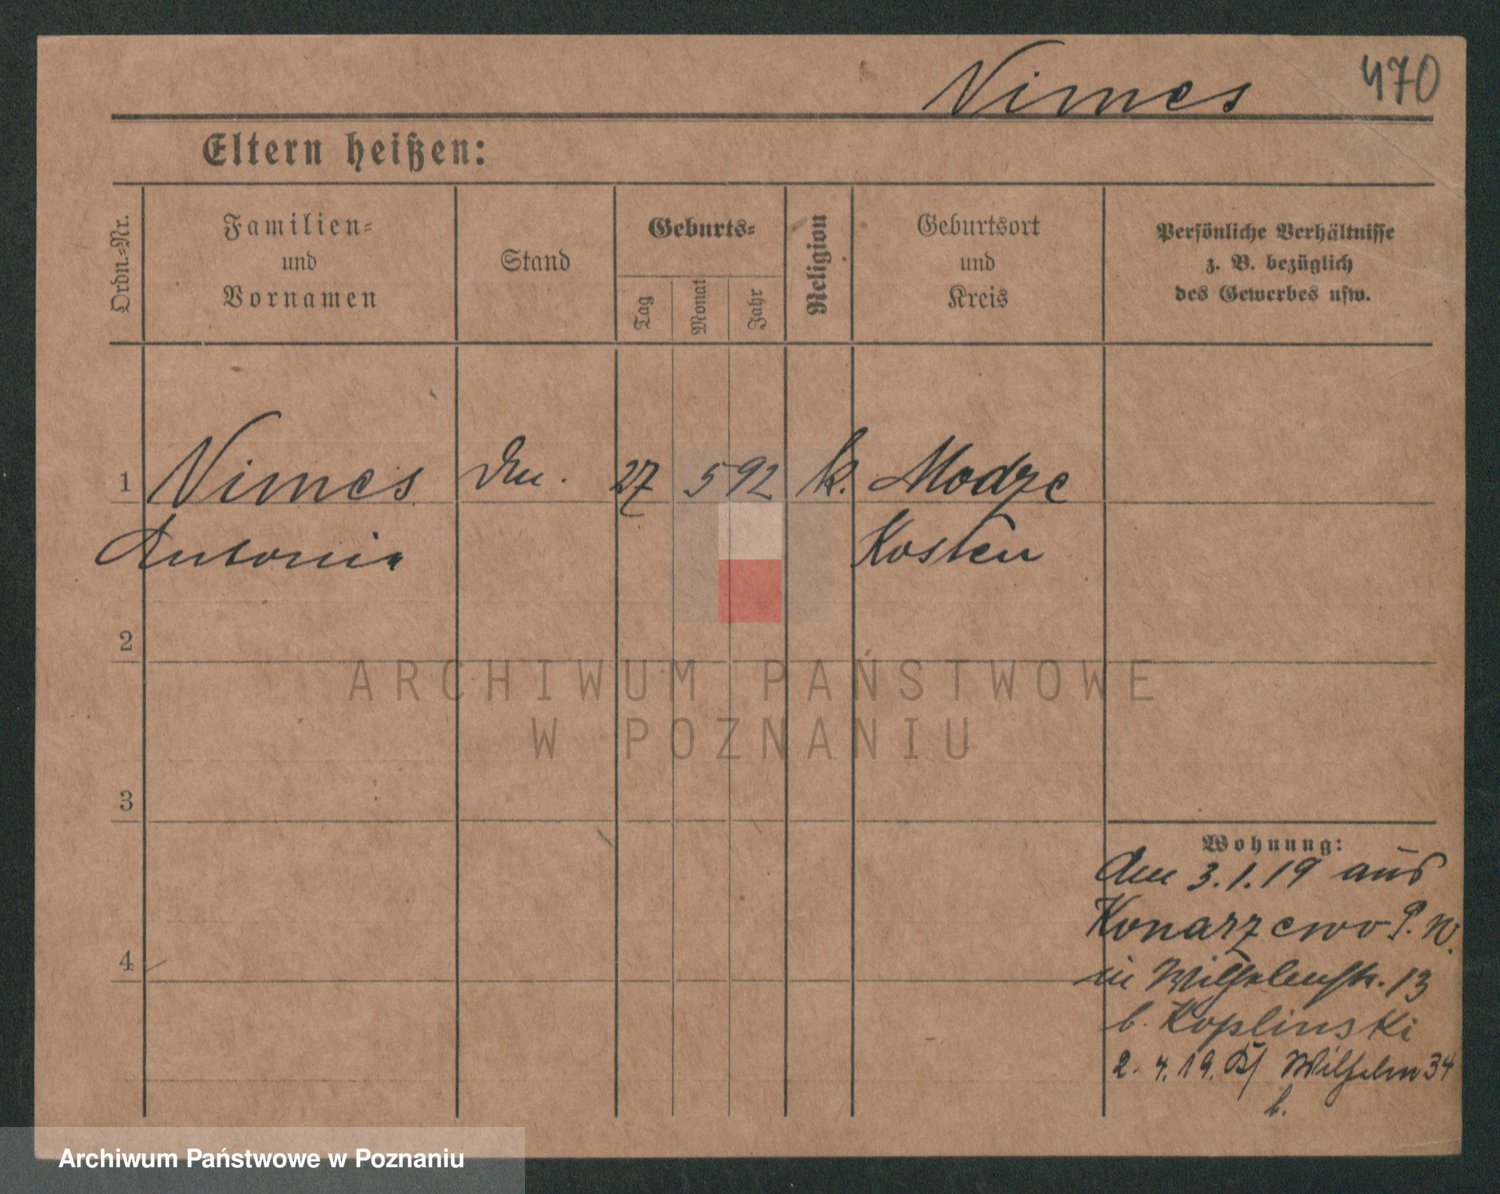 Nimes 470
Eltern heißen:
Ordn.-Nr.
Familien-
und
Vornamen
Stand
Geburts-
Tag
Monat
Jahr
Religion
Geburtsort
und
Kreis
Persönliche Verhältnisse
z. B. bezüglich
des Gewerbes usw.
1 Nimes 27 5 92 k. Modze
Antonia Kosten
2
ARCHIWUM PAŃSTWOWE
W POZNANIU
3
Wohnung:
3.1.19 aus
Konarzewo P. W.
in Wilhelmstr. 13
b. Koplinski
4
2. 4. 19. Wilhelm 34
b.
Archiwum Państwowe w Poznaniu